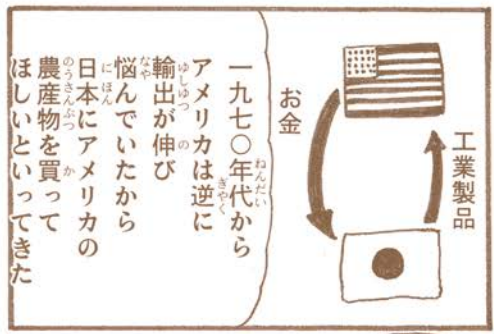 工業製品
お金
一九七〇年代から
アメリカは逆に
輸出が伸び
悩んでいたから
日本にアメリカの
農産物を買って
ほしいといってきた